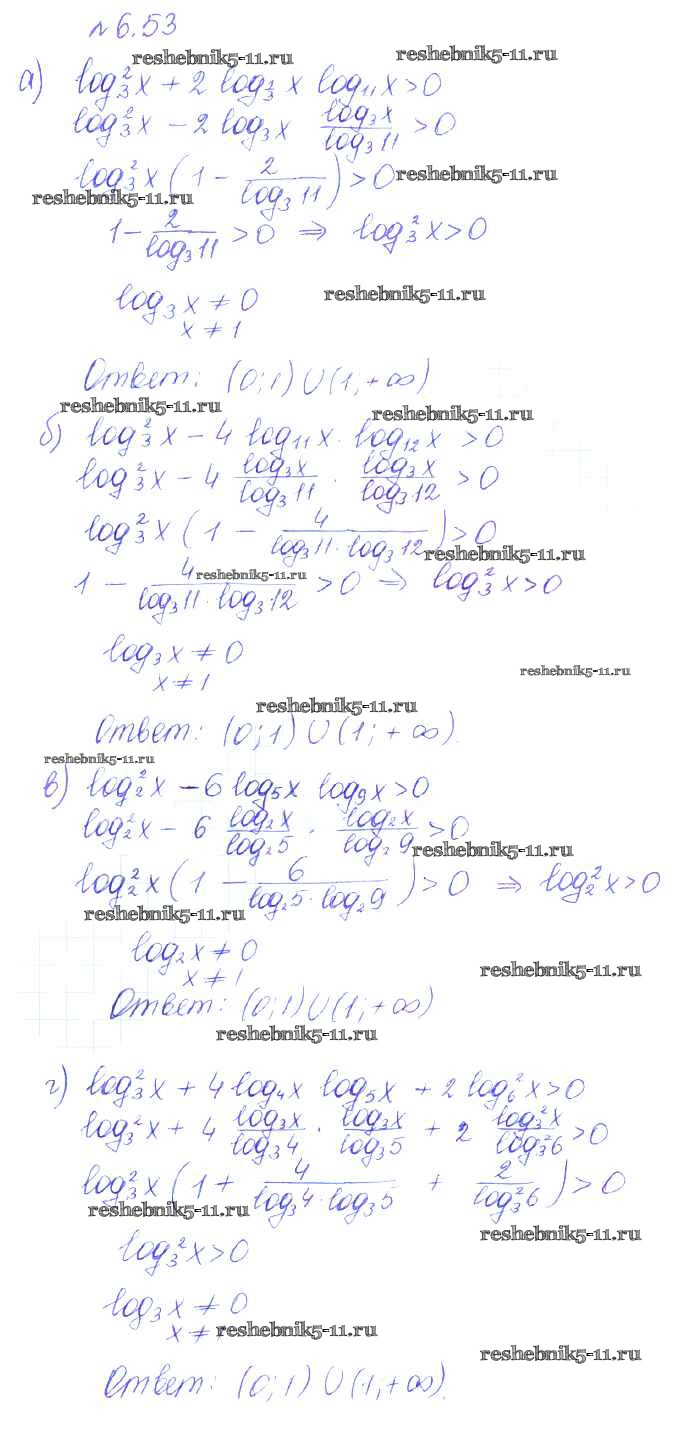 № 6.53
reshebnik5-11.ru reshebnik5-11.ru
а) log₃²x + 2 log_{1/3} x log₁₁x > 0
log₃²x − 2 log₃x log₃x/log₃11 > 0
log₃²x (1 − 2/log₃11) > 0 reshebnik5-11.ru
reshebnik5-11.ru
1 − 2/log₃11 > 0 ⇒ log₃²x > 0
log₃x ≠ 0 reshebnik5-11.ru
x ≠ 1
Ответ: (0; 1) ∪ (1; +∞)
reshebnik5-11.ru reshebnik5-11.ru
б) log₃²x − 4 log₁₁x · log₁₂x > 0
log₃²x − 4 log₃x/log₃11 · log₃x/log₃12 > 0
log₃²x (1 − 4/(log₃11 · log₃12)) > 0
reshebnik5-11.ru
1 − 4/(log₃11 · log₃12) > 0 ⇒ log₃²x > 0
reshebnik5-11.ru
log₃x ≠ 0
x ≠ 1 reshebnik5-11.ru
reshebnik5-11.ru
Ответ: (0; 1) ∪ (1; +∞).
reshebnik5-11.ru
в) log₂²x − 6 log₅x log₉x > 0
log₂²x − 6 log₂x/log₂5 · log₂x/log₂9 > 0
reshebnik5-11.ru
log₂²x (1 − 6/(log₂5 · log₂9)) > 0 ⇒ log₂²x > 0
reshebnik5-11.ru
log₂x ≠ 0
x ≠ 1 reshebnik5-11.ru
Ответ: (0; 1) ∪ (1; +∞)
reshebnik5-11.ru
г) log₃²x + 4 log₄x log₅x + 2 log₆²x > 0
log₃²x + 4 log₃x/log₃4 · log₃x/log₃5 + 2 log₃²x/log₃²6 > 0
log₃²x (1 + 4/(log₃4 · log₃5) + 2/log₃²6) > 0
reshebnik5-11.ru
reshebnik5-11.ru
log₃²x > 0
log₃x ≠ 0
x ≠ reshebnik5-11.ru
reshebnik5-11.ru
Ответ: (0; 1) ∪ (1; +∞).